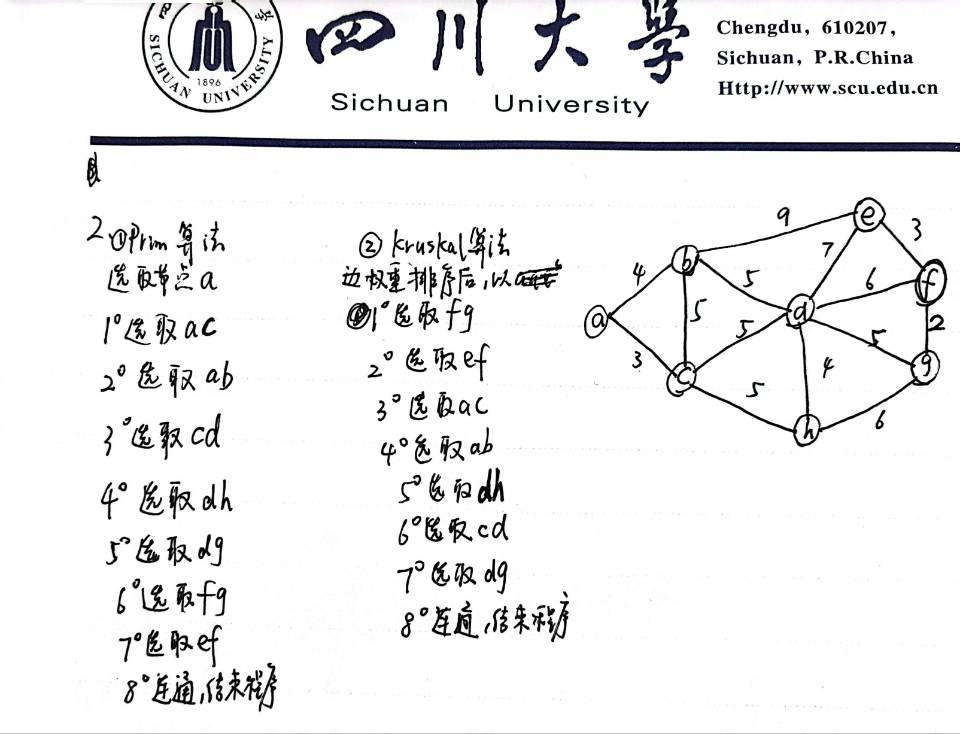 SICHUAN UNIVERSITY
1896
四川大學
Sichuan University
Chengdu, 610207,
Sichuan, P.R.China
Http://www.scu.edu.cn
2 ①Prim算法
选取单点a
1° 选取ac
2° 选取ab
3° 选取cd
4° 选取dh
5° 选取dg
6° 选取fg
7° 选取ef
8° 连通,结束程序
② kruskal算法
边权重排序后,以
1° 选取fg
2° 选取ef
3° 选取ac
4° 选取ab
5° 选取dh
6° 选取cd
7° 选取dg
8° 连通,结束程序
9 e
7 3
b
4 5 6 f
a 5 d
5 5 2
3 4 g
c
5 6
h